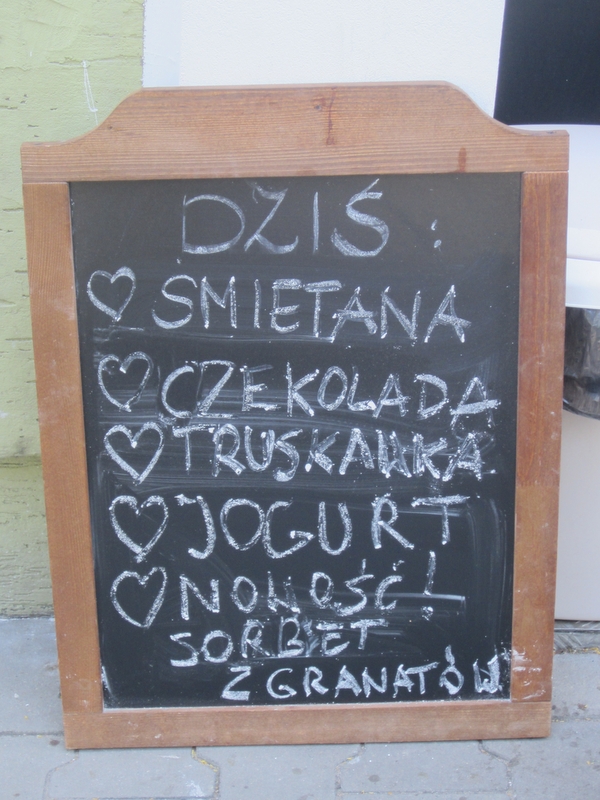 DZIŚ :
♡ ŚMIETANA
♡ CZEKOLADA
♡ TRUSKAWKA
♡ JOGURT
♡ NOWOŚĆ!
SORBET
Z GRANATÓW